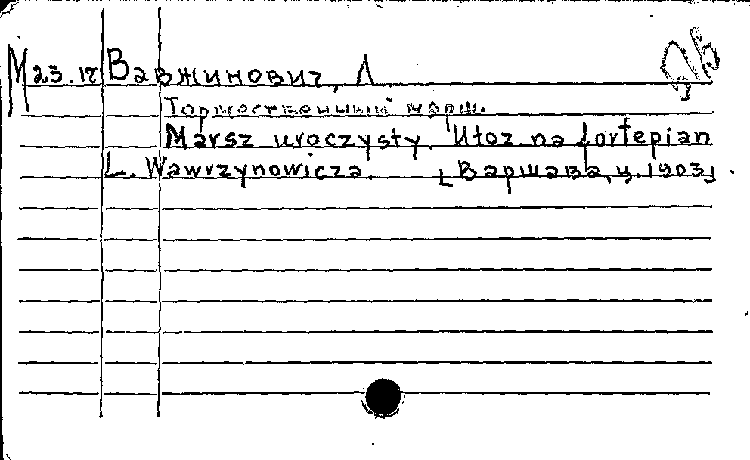 М 23.17 Вавжинович, Л
Торжественный марш.
Marsz uroczysty. Utoz na fortepian
L. Wawrzynowicza. [Варшава, ц. 1903]